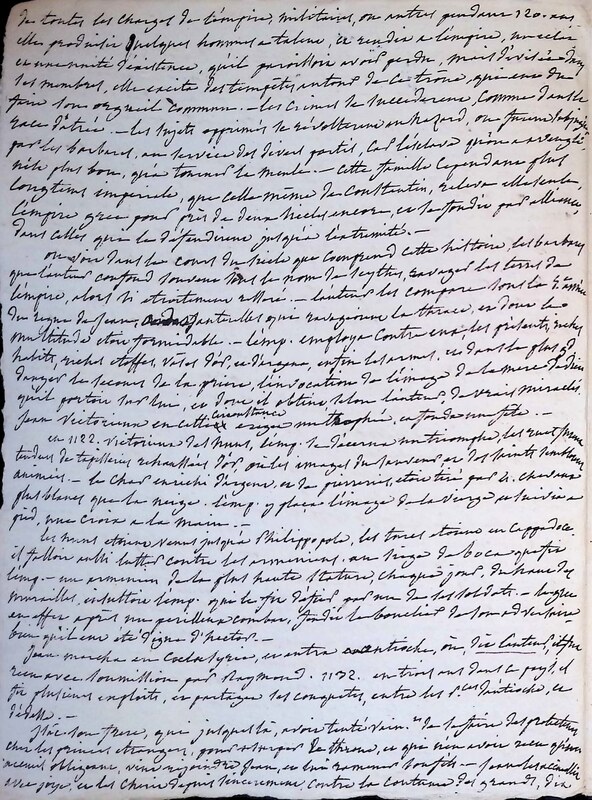 de toutes les charges de l'empire, militaires, ou autres pendant 120. ans
elle produisit quelques hommes à talent, et rendit à l'empire, un éclat
et une unité d'existence, qu'il paroissoit avoir perdu, mais divisée dans
ses membres, elle excita des tempêtes autour de ce trône, que eut du
faire son orgueil commun. - les crimes se succederent, comme dans la
race d'atrée. - les sujets opprimés se révolterent au hazard, ou furent
par les barbares, au service des divers partis, car l'esclave qu'on a aveuglé
n'est plus bon, qu'à tourner la meule. - Cette famille cependant plus
longtems imperiale, que celle même de Constantin, releva elle seule,
l'empire grec pour près de deux siecles encore, et se fondit par alliance,
dans celles qui le défendirent jusqu'à l'extremité. -
on voit dans le cours du siecle que comprend cette histoire, les barbares
que l'auteur confond souvent sous le nom de scythes, ravager les terres de
l'empire, alors si etroitement resserré. - l'auteur les compare sous la 5e année
du regne de Jean, aux sauterelles qui ravagerent la thrace, et dont la
multitude etoit formidable. - l'emp. employa contre eux les présents, riches
habits, riches etoffes, vases d'or, et d'argent, enfin les armes, et dans le plus gd
danger le secours de la priere, l'invocation de l'image de la mere de dieu
qu'il portoit sur lui, et dont il obtint selon l'auteur de vrais miracles.
Jean victorieux en cette circonstance erigea un trophée, et fonda une fête. -
en 1122. victorieux des huns, l'emp. se décerna un triomphe, les rues furent
tendues de tapisseries rehaussées d'or, où les images du sauveur et des saints sembloient
animées. - le char enrichi d'argent, et de pierreries, etoit tiré par 4. chevaux
plus blancs que la neige. l'emp. y plaça l'image de la vierge et suivit à
pied, une croix à la main. -
les huns etoient venus jusqu'à Philippopole, les turcs etoient en Cappadoce
il falloit aussi lutter contre les armeniens. au siege de boca que fit
l'emp. - un armenien de la plus haute stature, chaque jour, du haut des
murailles, insultoit l'emp. qui le fit defier par un de ses soldats. - le grec
en effet après un perilleux combat, fendit le bouclier de son adversaire
bien qu'il eut été digne d'hector. -
Jean marcha en Coelesyrie, et entra à antioche, où, dit l'auteur, il fut
reçu avec soumission par Raymond. 1132. en trois ans dans ce pays, il
fit plusieurs exploits, et partagea ses conquetes, entre les Pces d'antioche, et
d'édesse. -
Isac son frere, qui jusques là, avoit tenté vain.t de se faire des protecteurs
chez les princes etrangers, pour usurper le throne, et qui n'en avoit reçu qu'un
accueil obligeant, vint rejoindre Jean, et lui ramener son fils - Jean les accueillit
avec joye, et les cherit depuis sincerement, contre la coutume des grands, dit